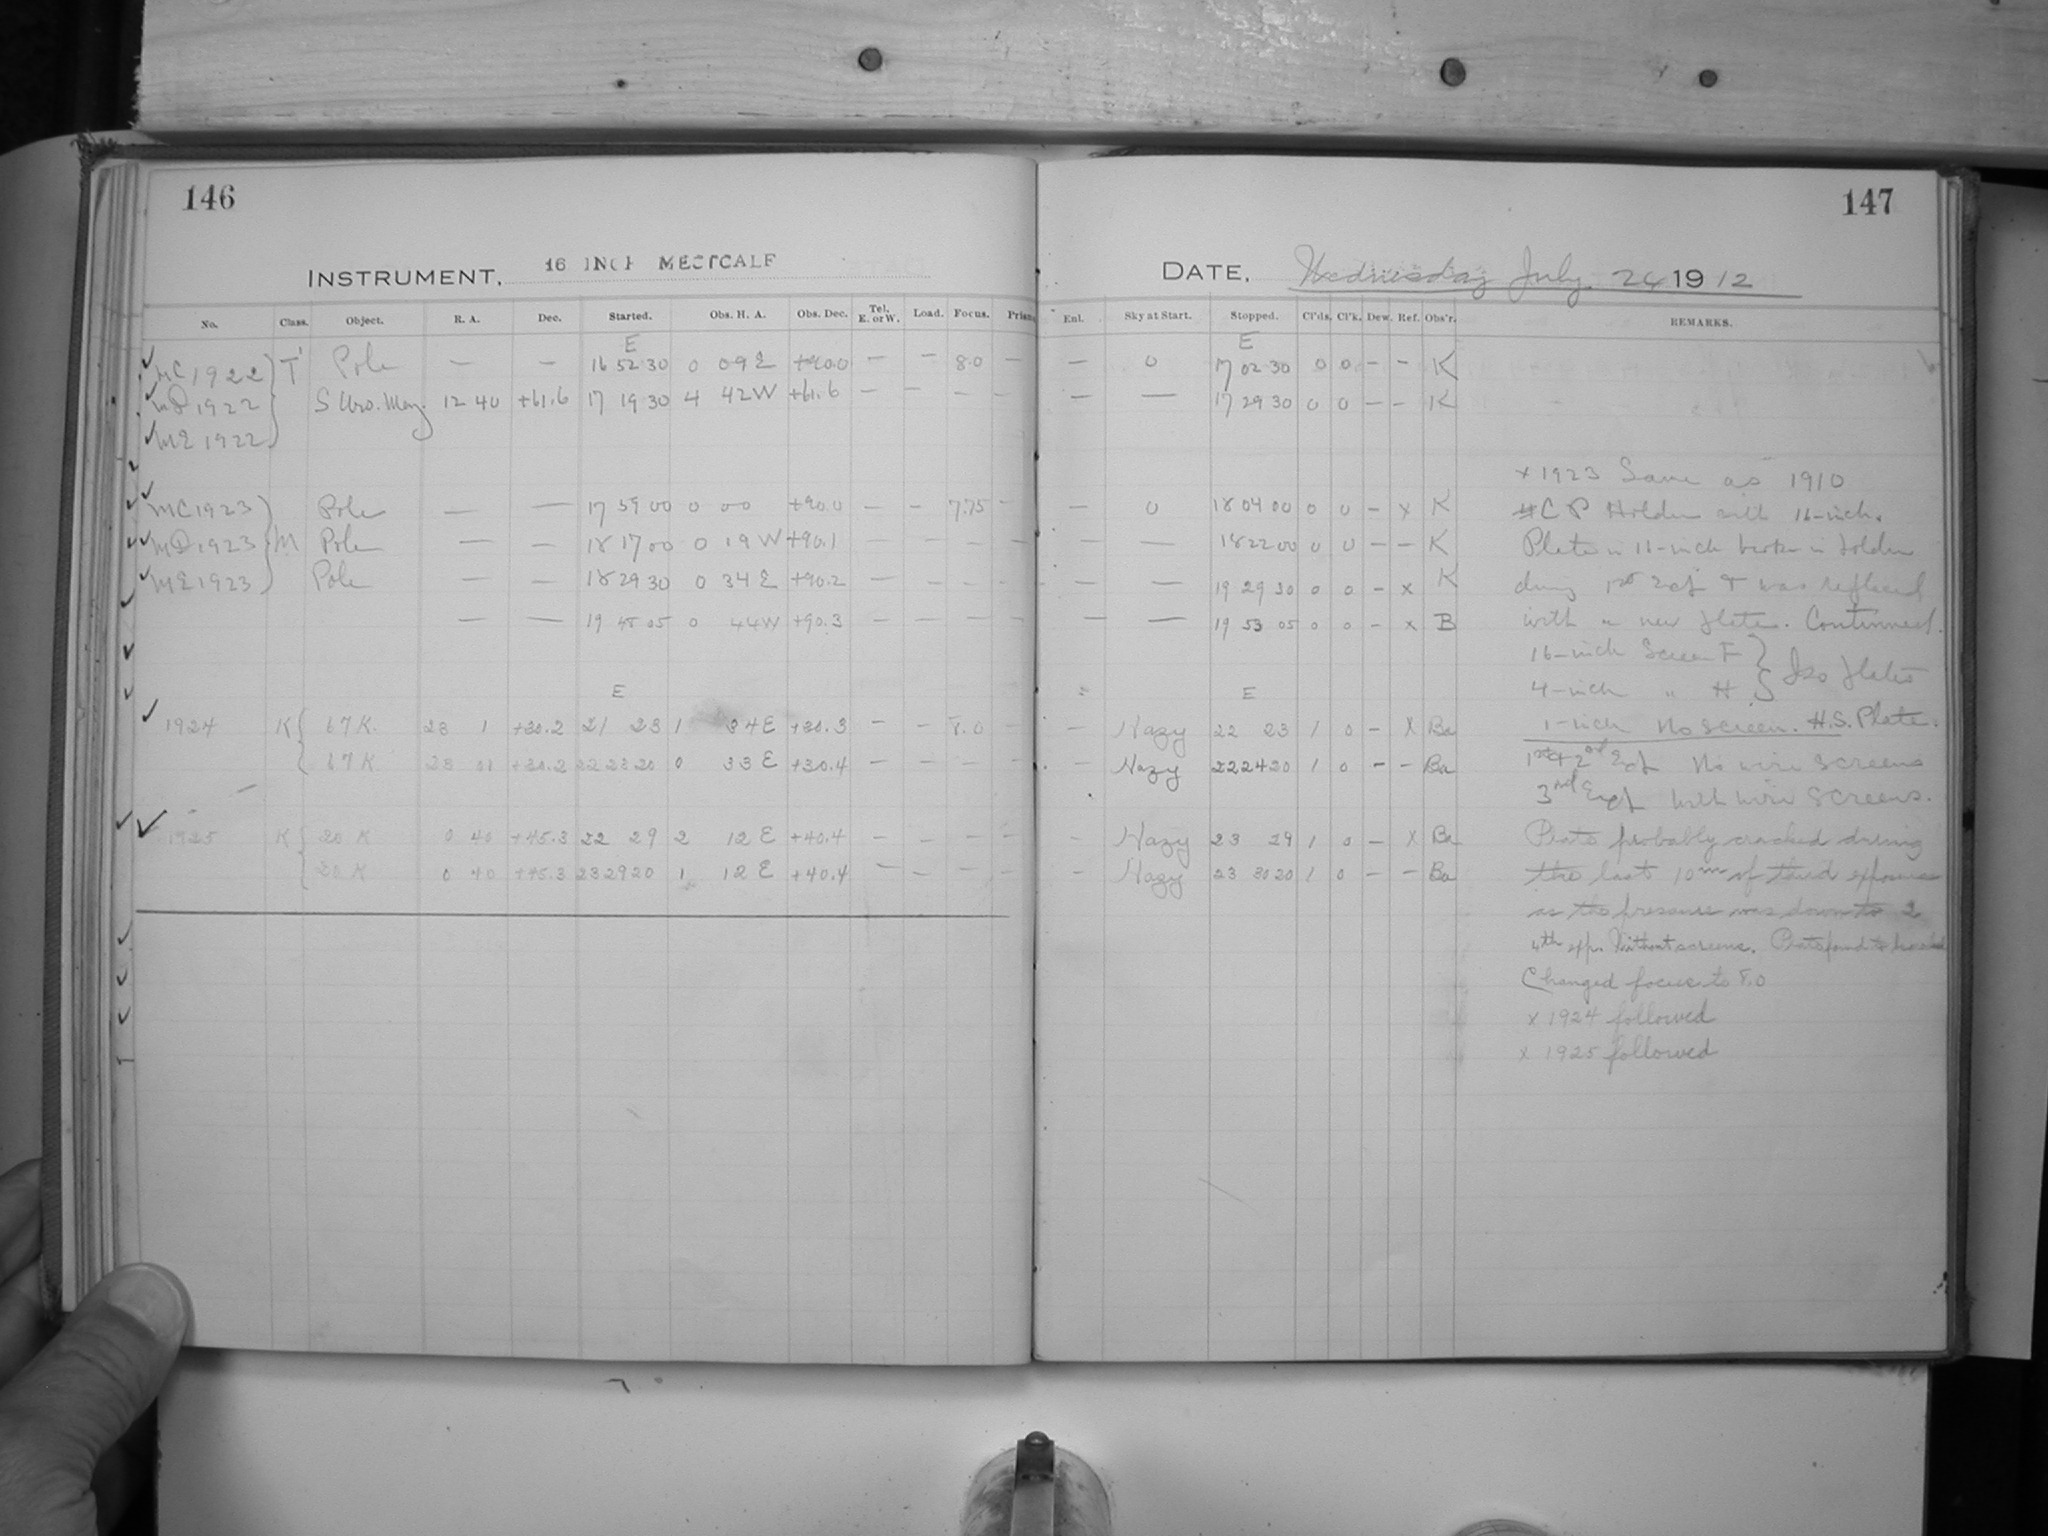 146
147
INSTRUMENT. 16 INCH METCALF
DATE. Wednesday July. 24 1912
No. Class. Object. R. A. Dec. Started. Obs. H. A. Obs. Dec. Tel. E. or W. Load. Focus. Prism. Enl. Sky at Start. Stopped. Cl'ds. Cl'k. Dew. Ref. Obs'r. REMARKS.
E E
MC 1922 T' Pole — — 16 52 30 0 09 E +90.0 — — 8.0 — — 0 17 02 30 0 0 — — K
MD 1922 S Urs. Maj. 12 40 +61.6 17 19 30 4 42 W +61.6 — — — — 17 29 30 0 0 — — K
ME 1922
x 1923 Same as 1910
MC 1923 Pole — — 17 59 00 0 00 +90.0 — — 7.75 — — 0 18 04 00 0 0 — x K C P Holder with 16-inch.
MD 1923 M Pole — — 18 17 00 0 19 W +90.1 — — — — — — 18 22 00 0 0 — — K Plate in 16-inch broke in holder
ME 1923 Pole — — 18 29 30 0 34 E +90.2 — — — — — — 19 29 30 0 0 — x K during 1st Exp & was replaced
— — 19 48 05 0 44 W +90.3 — — — — — — 19 53 05 0 0 — x B with a new plate. Continued.
16-inch Screen F
E = E 4-inch " H. Iso Plates
1924 K 67 K. 23 1 +30.2 21 23 1 34 E +30.3 — — 8.0 — — Hazy 22 23 1 0 — x Ba 1-inch No screen. H.S. Plate.
67 K 23 01 +30.2 22 23 20 0 33 E +30.4 — — — — — Hazy 22 24 20 1 0 — — Ba 1st & 2nd Exp No wire screens
3rd Exp with wire screens.
1925 K 20 K 0 40 +45.3 22 29 2 12 E +40.4 — — — — — Hazy 23 29 1 0 — x Ba Plate probably cracked during
20 K 0 40 +45.3 23 29 20 1 12 E +40.4 — — — — — Hazy 23 30 20 1 0 — — Ba the last 10m of third exposure
as the pressure was down to 2
4th exp. without screens. Plate found to be
Changed focus to 8.0
x 1924 followed
x 1925 followed